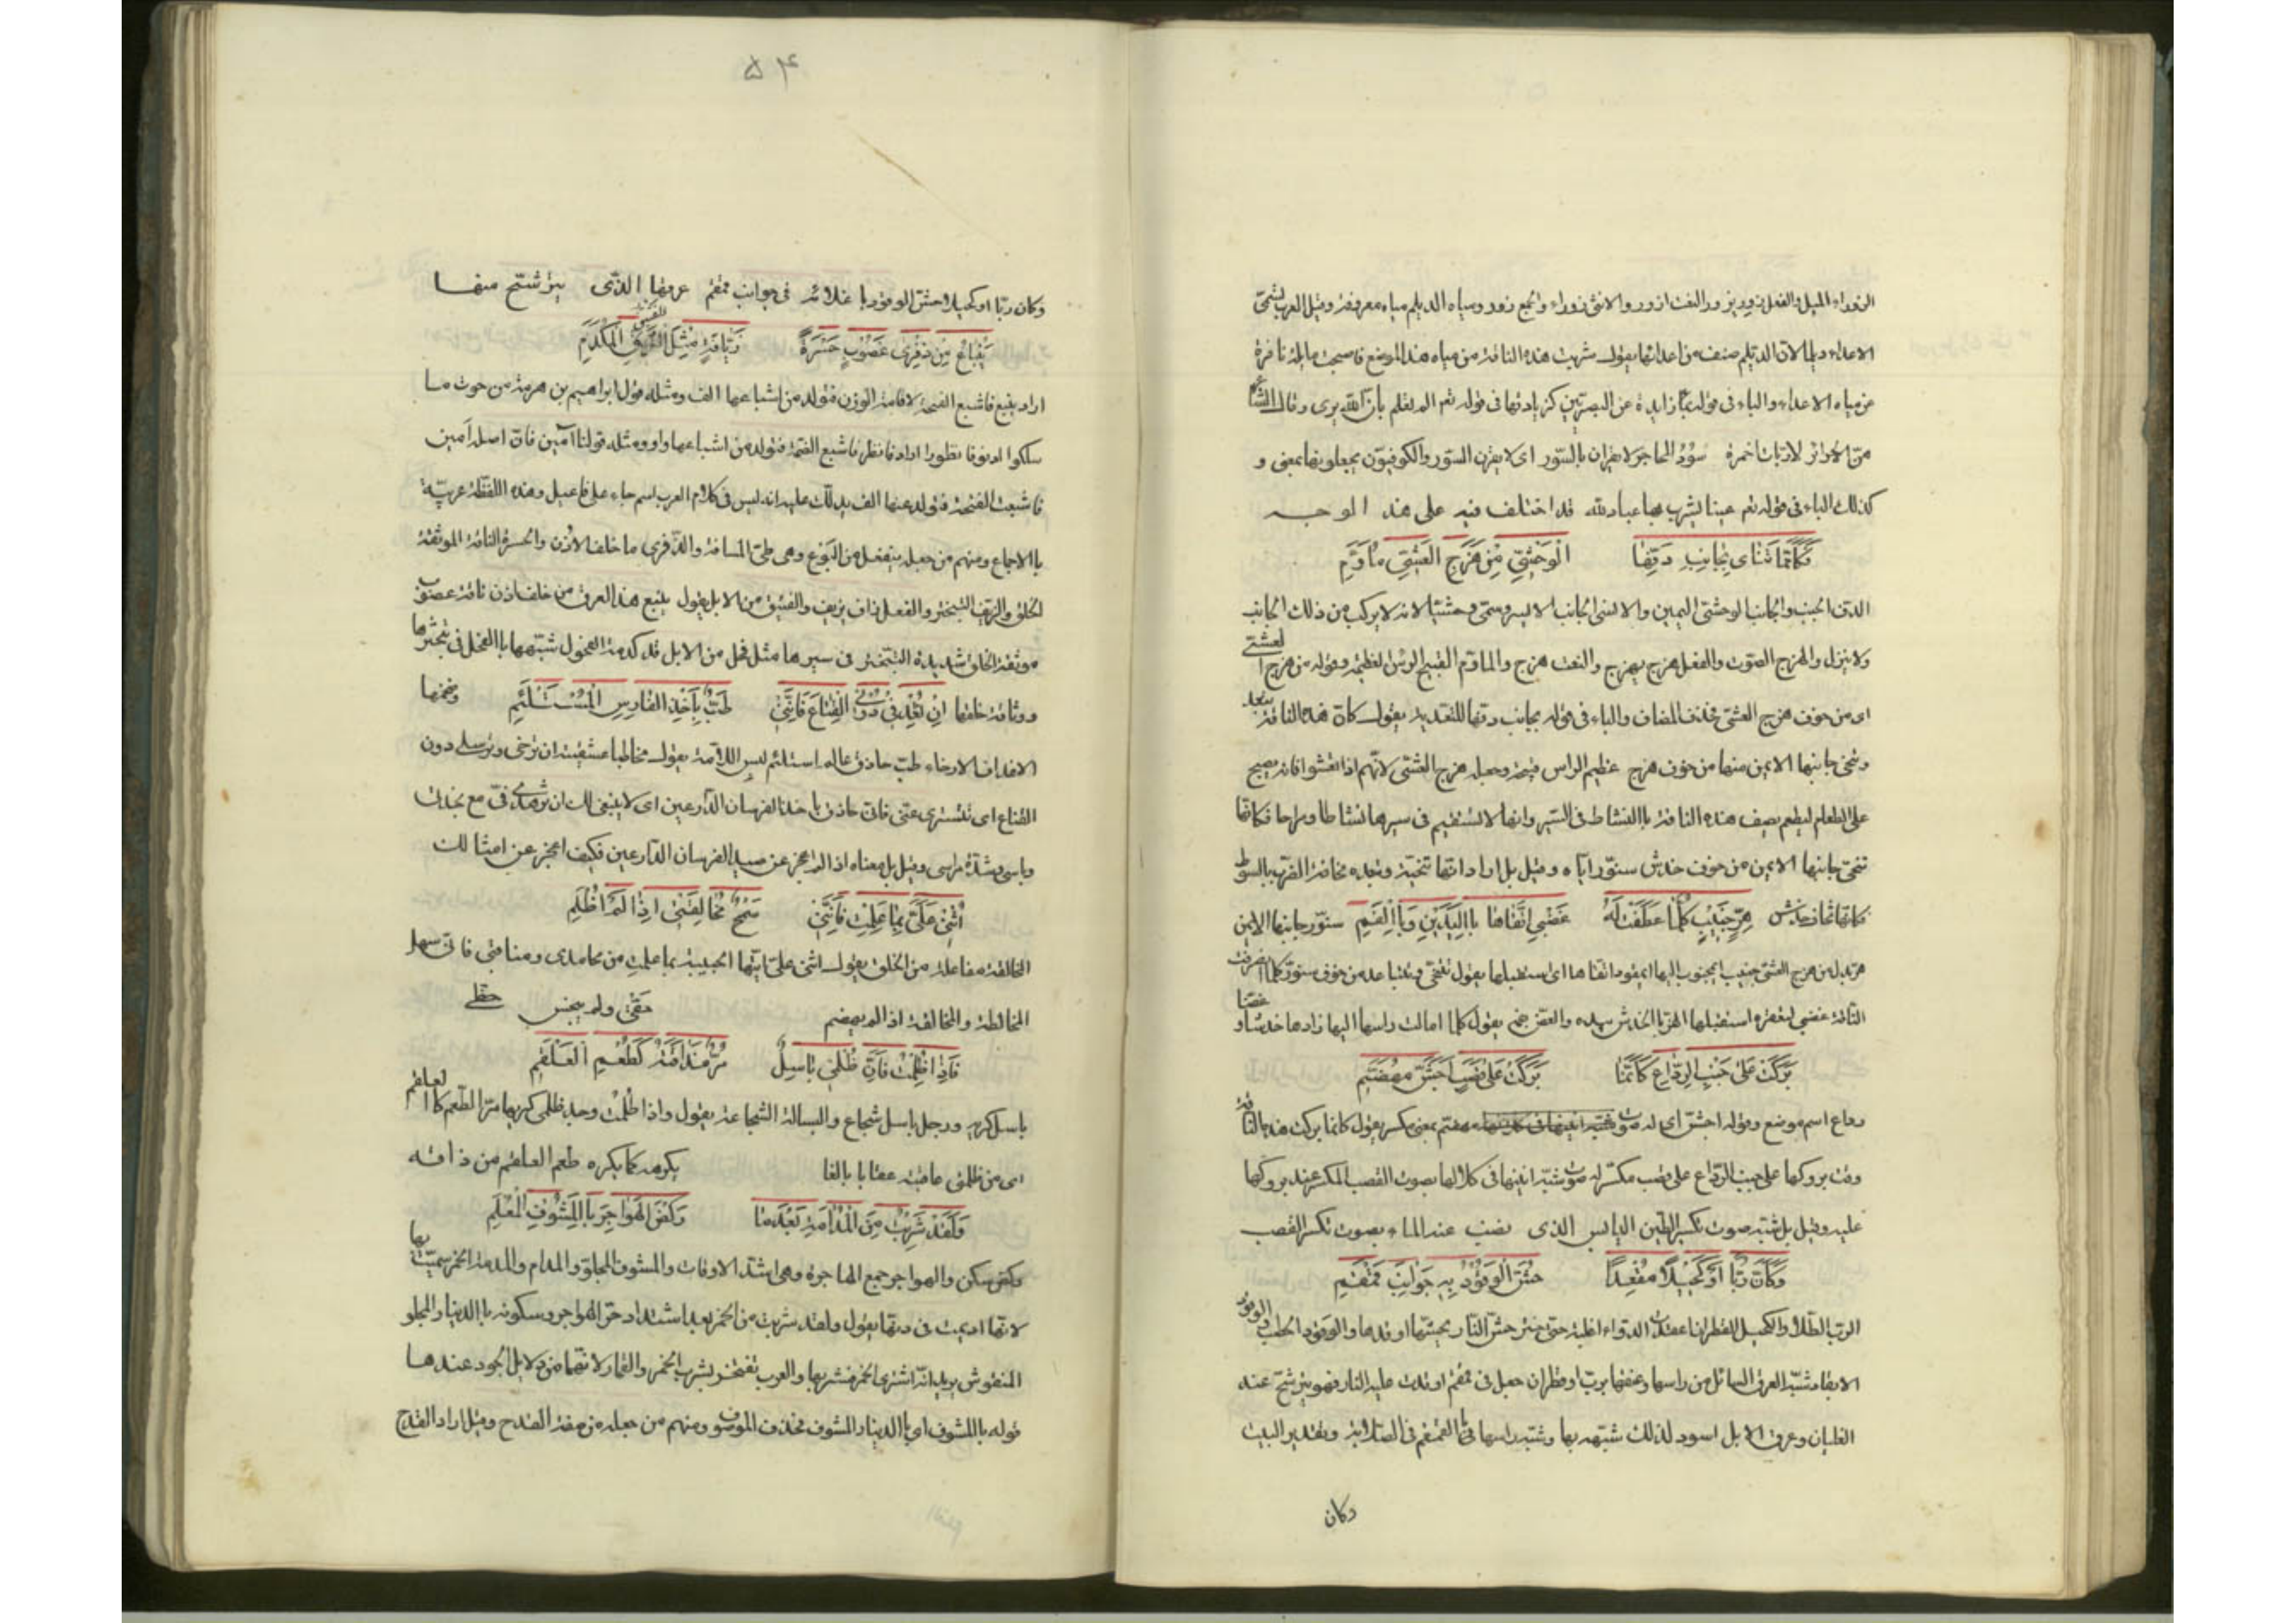 الزوراء الميل والفعل زور يزور والنعت ازور والانثى زوراء والجمع زور ومياه الديلم مياه معروفة وقيل العرب تسمى
الاعداء ديلما لان الديلم صنف من اعدائها يقول شربت هذه الناقة من مياه هذا الموضع فاصبحت مايلة نافرة
عن مياه الاعداء والباء فى قوله بماء زايدة عن البصريين كزيادتها فى قوله تم الم يعلم بان الله يرى وقال الشاعر
هن الحرائر لا ربات اخمرة سود المحاجر لا يقران بالسور اى لا يقرن السور والكوفيون يجعلونها بمعنى و
كذلك الباء فى قوله تم عينا يشرب بها عباد الله قد اختلف فيه على هذ الوجه
وَكَانَّمَا تَنْاى بِجانِبِ دَفِّهَا الْوَحْشِىِّ مِنْ هَزَجِ العَشِىِّ مأوَّمِ
الدف الجنب والجانب الوحشى اليمين والانسى الجانب الايسر وسمى وحشيا لانه لا يركب من ذلك الجانب
ولا ينزل والهزج الصوت والفعل هزج يهزج والنعت هزج والماوم القبيح الراس العظيمة وقوله من هزج العشى
اى من خوف هزج العشى فحذف المضاف والباء فى قوله بجانب دفها للتعدية يقول كان هذه الناقة تبعد
وتنحى جانبها الايمن منها من خوف هزج عظيم الراس قبيحه وجعله هزج العشى لانهم اذا تعشوا فانه يصيح
على الطعام ليطعم يصف هذه الناقة باالنشاط فى السير وانها لا تستقيم فى سيرها نشاطا ومراحا فكانها
تنحى جانبها الايمن من خوف خدش سنور اياه وقيل بل اراد انها تنحيه وتبعده مخافة الضرب بالسوط
فكانها تخاف خدش هِرٍّ جَنِيبٍ كُلَّمَا عَطَفَتْ لَهُ غَضْبى اتَّقَاهَا بِاالْيَدَيْنِ وَبِاالْفَمِ سنور جانبها الايمن
هر بدل من هزج العشى جنيب اى مجنوب اليها اى مقود اتقاها اى استقبلها يقول تنحى وتتباعد من خوف سنور كلما انصرفت
الناقة غضبى لتعقره استقبلها الهر باالخدش بيده والعض بفمه يقول كلما امالت راسها اليها زادها خدشا و عضا
بَرَكَتْ عَلى جَنْبِ الرِّدَاعِ كَانَّمَا بَرَكَتْ عَلى قَصَبٍ اَجَشَّ مهضَّمِ
رداع اسم موضع وقوله اجش اى له صوت مهضم بمعنى مكسر يقول كانما بركت هذه الناقة
وقت بروكها على جنب الرداع على قصب مكسر له صوت شبه انينها فى كلالها بصوت القصب المكسر عند بروكها
عليه وقيل بل شبه صوت تكسر الطين اليابس الذى نضب عنه الماء بصوت تكسر القصب
وَكَانَّ رُبًّا اَوْ كُحَيْلًا مُعْقَدًا حَشَّ الْوَقُودُ بِهِ جَوانِبَ قمْقمِ
الرب الطلاء والكحيل القطران اعقدت الدواء اغليته حتى خثر حش النار يحشها اوقدها والوقود الحطب والوقود
الايقاد شبه العرق السائل من راسها وعنقها برب او قطران جعل فى قمقم اوقدت عليه النار فهو يترشح عند
الغليان وعرق الابل اسود لذلك شبهه بها وشبه راسها باالقمقم فى الصلابة وتقدير البيت
وكان
٥٤
وكان ربا او كحيلا حش الوقود باغلائه فى جوانب قمقم عرقها الذى يترشح منها
يَنْبَاعُ مِنْ ذِفْرى غَضُوبٍ جَسْرَةٍ زَيَّافَةٍ مِثْلَ الْفَنِيقِ الْمُكْدَمِ
اراد ينبع فاشبع الفتحة لاقامة الوزن فتولد من اشباعها الف ومثله قول ابراهيم بن هرمة من حوث ما
سلكوا ادنو فانظورا اراد فانظر فاشبع الضمة فتولد من اشباعها واو ومثله قولنا آمين فان اصله امين
فاشبعت الفتحة فتولد عنها الف يدلك عليه انه ليس فى كلام العرب اسم جاء على فاعيل وهذه اللفظة عربية
باالاجماع ومنهم من جعله ينفعل من البوع وهى طى المسافة والذفرى ما خلف الاذن والجسرة الناقة الموثقة
الخلق والزيف التبختر والفعل زاف يزيف والفنيق من الابل يقول ينبع هذا العرق من خلف اذن ناقة غضوب
موثقة الخلق شديدة التبختر فى سيرها مثل فحل من الابل قد كدمته الفحول شبهها باالفحل فى تبخترها
ووثاقة خلقها اِنْ تُغْدِفى دُونِى الْقِنَاعَ فَاِنَّنى طَبٌّ بِاَخْذِ الفَارِسِ الْمُسْتَلْئِمِ وضخمها
الاغداف الارخاء طب حاذق عالم استلئم لبس اللامة يقول مخاطبا عشيقته ان ترخى وترسلى دون
القناع اى تتسترى عنى فانى حاذق باخذ الفرسان الدارعين اى لا ينبغى لك ان تزهدى فى مع نجدتى
وباسى وشدة مراسى وقيل بل معناه اذا لم اعجز عن صيد الفرسان الدارعين فكيف اعجز عن امثالك
اَثْنى عَلَىَّ بِمَا عَلِمْتِ فَاِنَّنى سَمْحٌ مُخَالَفَتى اِذَا لَمْ اُظْلَمِ
المخالقة مفاعلة من الخلق يقول اثنى على ايتها الحبيبة بما علمت من محامدى ومناقبى فانى سهل
المخالطة والمخالقة اذا لم يهضم حقى ولم يبخس حظى
فَاِذَا ظُلِمْتُ فَاِنَّ ظُلْمى بَاسِلٌ مُرٌّ مَذَاقَتُهُ كَطَعْمِ الْعَلْقَمِ
باسل كريه ورجل باسل شجاع والبسالة الشجاعة يقول واذا ظلمت وجد ظلمى كريها مرا كطعم العلقم
اى من ظلمنى عاقبته عقابا بالغا يكرهه كما يكره طعم العلقم من ذاقه
وَلَقَدْ شَرِبْتُ مِنَ الْمُدَامَةِ بَعْدَمَا رَكَدَ الْهَواجِرَ بِاالْمَشُوفِ الْمُعْلَمِ
ركد سكن والهواجر جمع الهاجرة وهى اشد الاوقات والمشوف المجلو والمدام والمدامة الخمر سميت بها
لانها اديمت فى دنها يقول ولقد شربت من الخمر بعد اشتداد حر الهواجر وسكونه باالدينار المجلو
المنقوش يريد انه اشترى الخمر فشربها والعرب تفتخر بشرب الخمر والقمار لانهما من دلايل الجود عندها
قوله باالمشوف اى باالدينار المشوف فحذف الموصوف ومنهم من جعله من صفة القدح وقيل اراد القدح